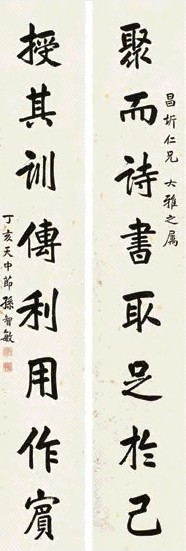 聚而詩書取足於己
昌圻仁兄 大雅之屬
授其訓傳利用作賓
丁亥天中節 孫智敏